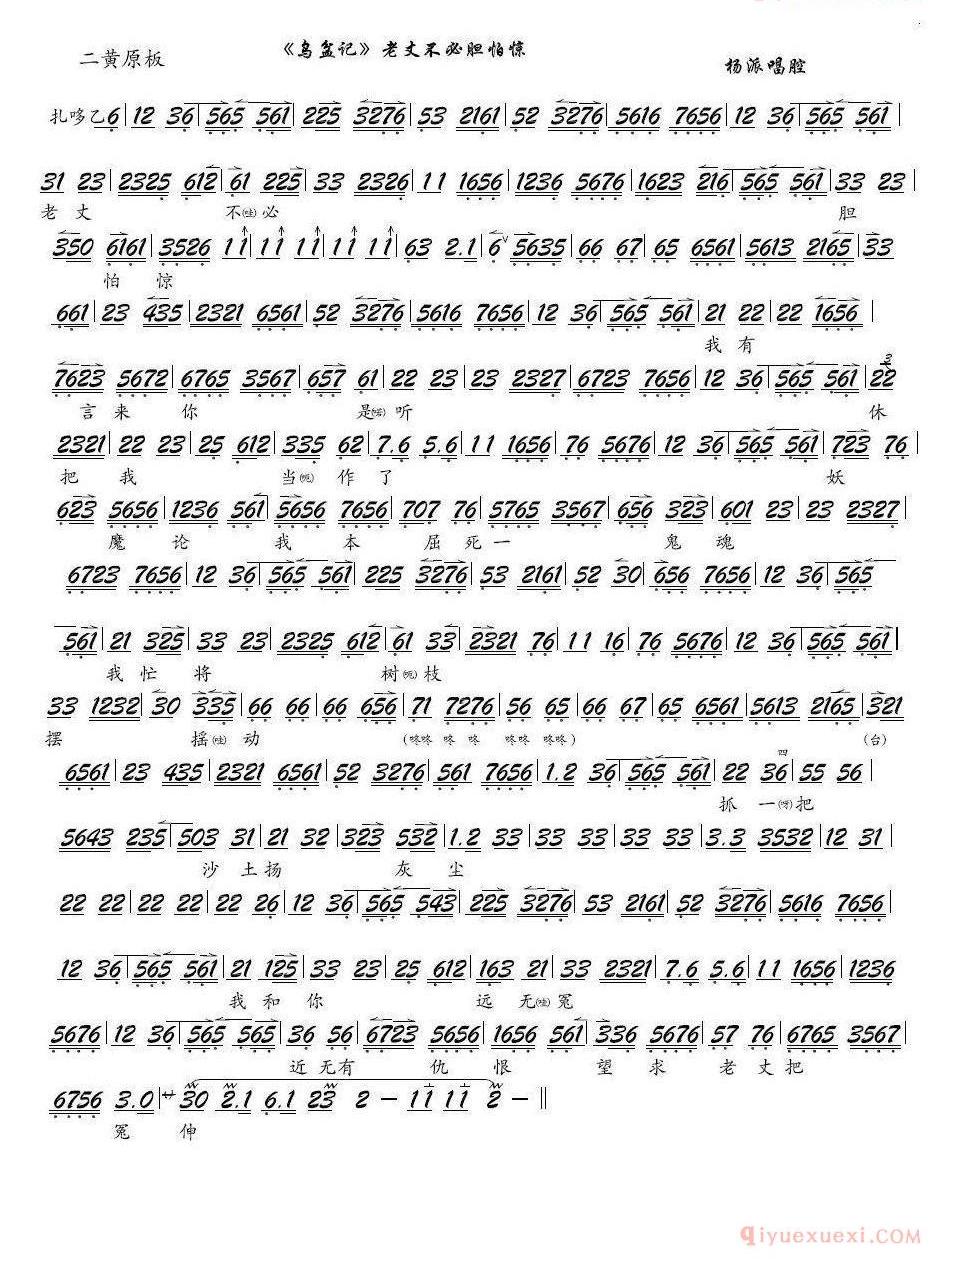 《乌盆记》老丈不必胆怕惊
二黄原板
杨派唱腔
扎哆乙6| 12 36| 565 561| 225 3276| 53 2161| 52 3276| 5616 7656| 12 36| 565 561|
31 23| 2325 612| 61 225| 33 2326| 11 1656| 1236 5676| 1623 216| 565 561| 33 23|
老丈 不(哇)必 胆
350 6161| 3526 11| 11 11| 11 11| 63 2.1| 6 5635| 66 67| 65 6561| 5613 2165| 33
怕 惊
661| 23 435| 2321 6561| 52 3276| 5616 7656| 12 36| 565 561| 21 22| 22 1656|
我 有
7623 5672| 6765 3567| 657 61| 22 23| 23 2327| 6723 7656| 12 36| 565 561| 22
3
言 来 你 是(喏)听 休
2321| 22 23| 25 612| 335 62| 7.6 5.6| 11 1656| 76 5676| 12 36| 565 561| 723 76|
把 我 当(呃) 作 了 妖
623 5656| 1236 561| 5656 7656| 707 76| 5765 3567| 656 323| 601 23| 23 2327|
魔 论 我 本 屈 死 一 鬼 魂
6723 7656| 12 36| 565 561| 225 3276| 53 2161| 52 30| 656 7656| 12 36| 565
561| 21 325| 33 23| 2325 612| 61 33| 2321 76| 11 16| 76 5676| 12 36| 565 561|
我 忙 将 树(呃)枝
33 1232| 30 335| 66 66| 66 656| 71 7276| 56 65| 66 67| 65 6561| 5613 2165| 321
摆 摇(哇)动 (咚咚 咚 咚 咚咚 咚咚) (台)
6561| 23 435| 2321 6561| 52 3276| 561 7656| 1.2 36| 565 561| 22 36| 55 56|
四
抓 一(呀)把
5643 235| 503 31| 21 32| 323 532| 1.2 33| 33 33| 33 33| 3.3 3532| 12 31|
沙 土 扬 灰 尘
22 22| 22 22| 22 26| 12 36| 565 543| 225 3276| 53 2161| 52 3276| 5616 7656|
12 36| 565 561| 21 125| 33 23| 25 612| 163 21| 33 2321| 7.6 5.6| 11 1656| 1236
我 和 你 远 无(哇)冤
5676| 12 36| 565 565| 36 56| 6723 5656| 1656 561| 336 5676| 57 76| 6765 3567|
近 无 有 仇 恨 望 求 老 丈 把
6756 3.0| 30 2.1 6.1 23 2 — 11 11 2 — ‖
冤 伸
qiyuexuexi.COM